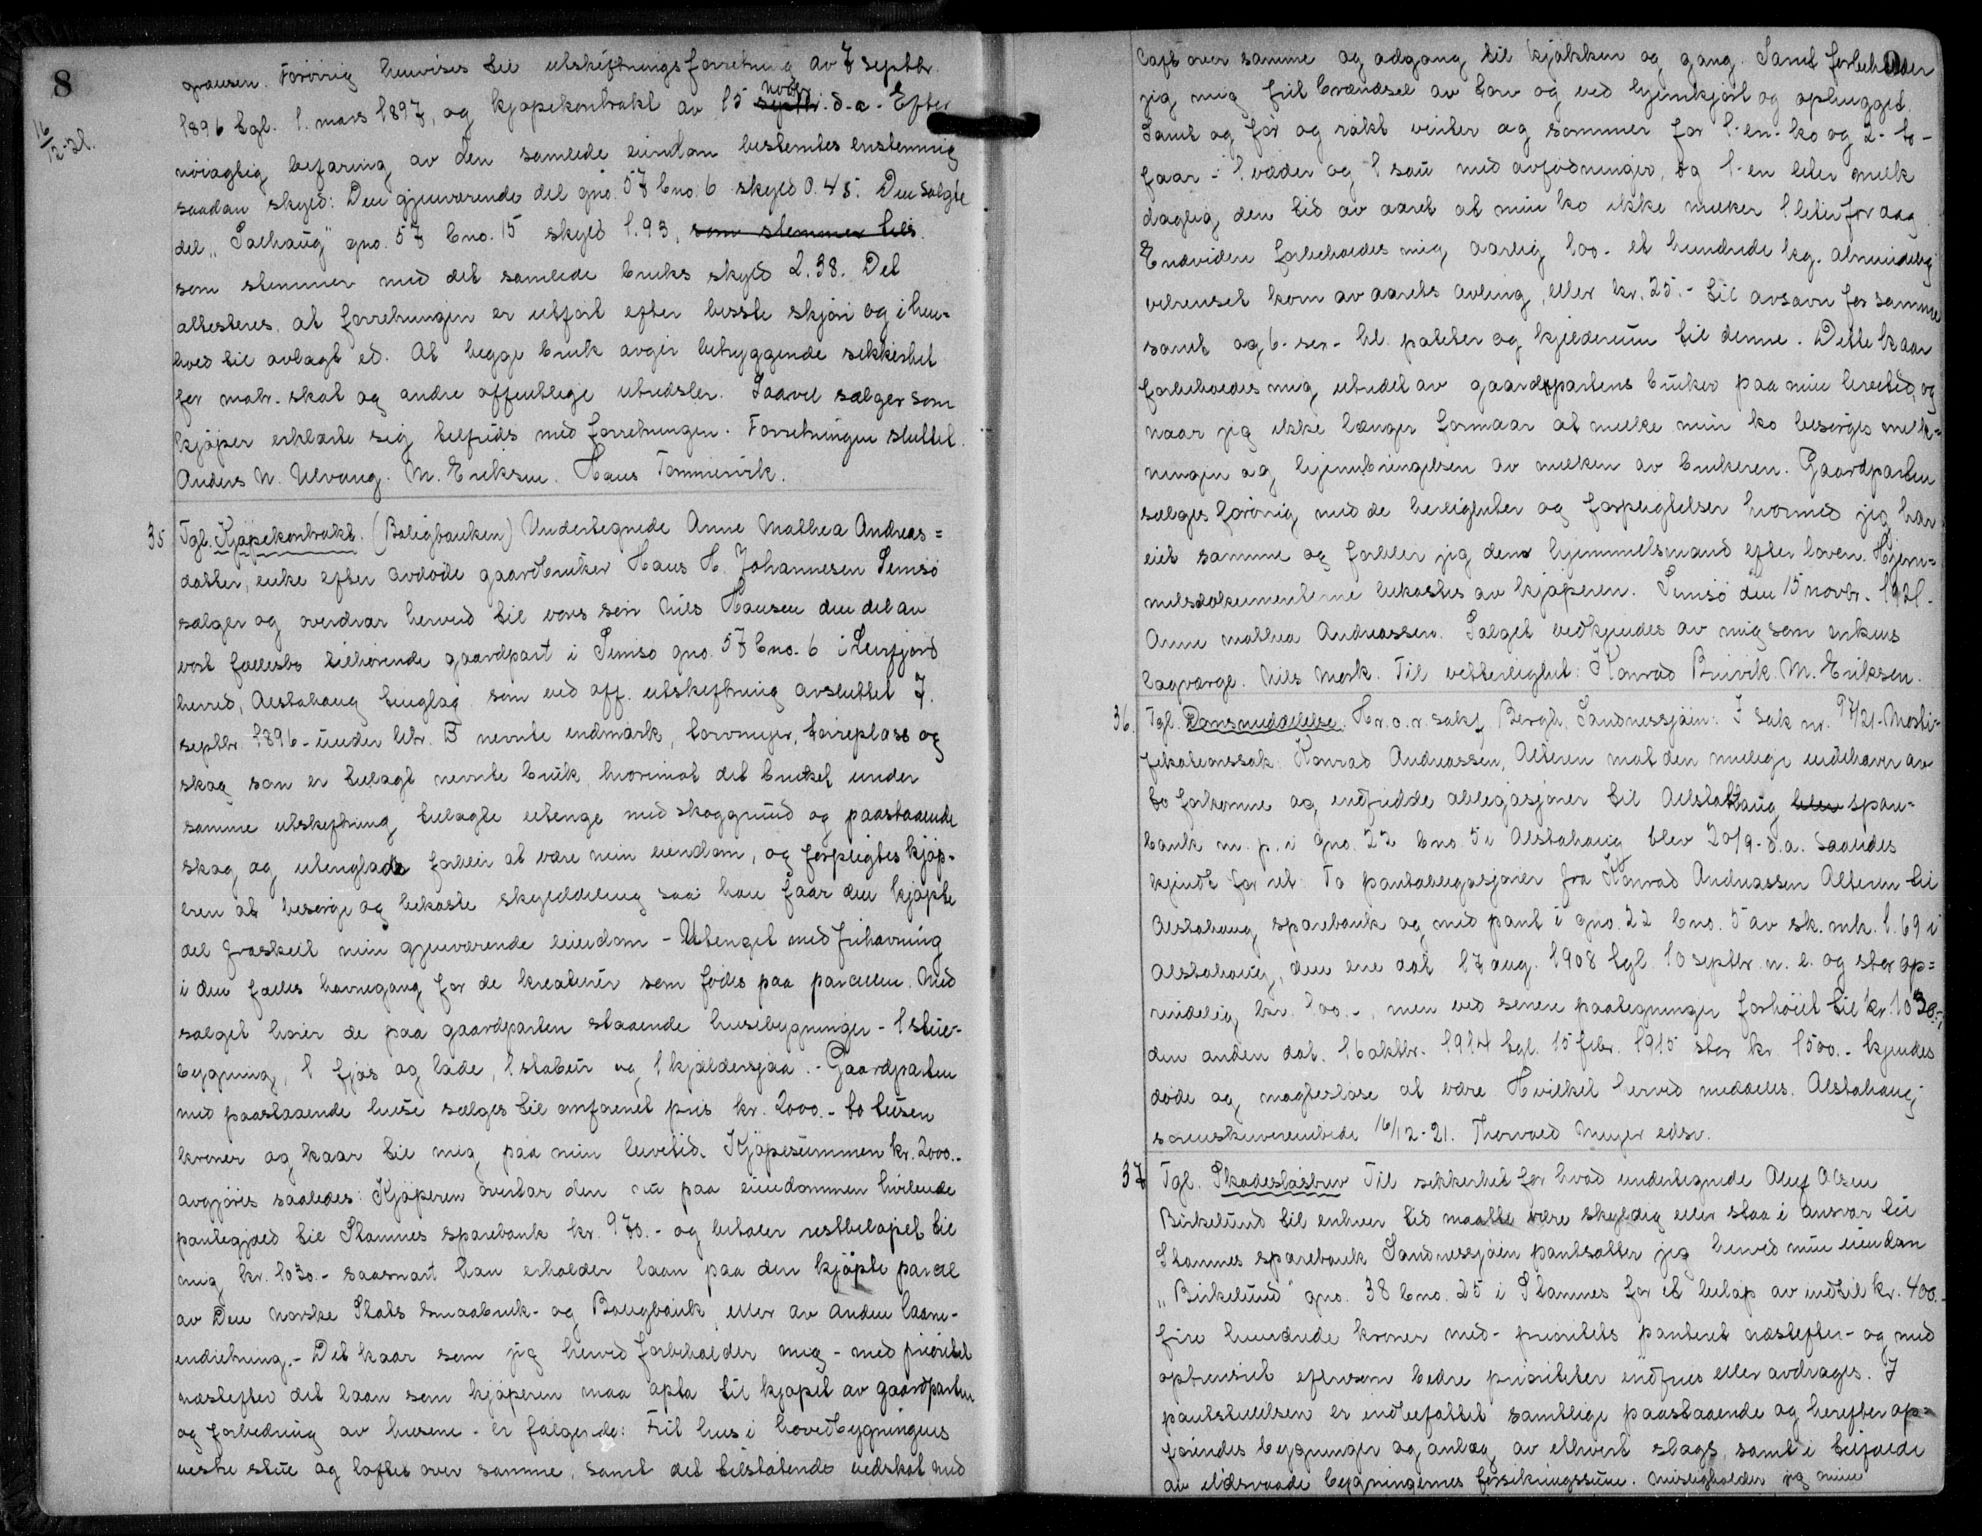 8
16/12-21.
grænsen. Forøvrig henvises til utskiftningsforretning av 7 septbr.
1896 tgl. 1. mars 1897, og kjøpekontrakt av 15 septbr. novbr. d.a. Efter
nøiagtig befaring av den samlede eiendom bestemtes enstemmig
saadan skyld: Den gjenværende del gno. 57 bno. 6 skyld 0.45. Den solgte
del „Solhaug" gno. 57 bno. 15 skyld 1.93, som stemmer tils
som stemmer med det samlede bruks skyld 2.38. Det
attesteres at forretningen er utført efter bedste skjøn og i hen-
hold til avlagt ed. At begge bruk avgir betryggende sikkerhet
for matr. skat og andre offentlige utredsler. Saavel sælger som
kjøper erklærte sig tilfreds med forretningen. Forretningen sluttet.
Anders N. Ulvang. M. Eriksen. Hans Tommervik.
35 Tgl. Kjøpekontrakt. (Boligbanken) Undertegnede Anne Mathea Andreas=
datter, enke efter avdøde gaardbruker Hans H. Johannesen Semsø
sælger og overdrar herved til vores søn Nils Hansen den del av
vort fællesbo tilhørende gaardpart i Semsø gno. 57 bno. 6 i Leirfjord
herred, Alstahaug tinglag som ved off. utskiftning avsluttet 7.
septbr. 1896 - under litr. B nevnte indmark, torvmyr, tørreplass og
skog som er tillagt nevnte bruk, hvorimot det bruket under
samme utskiftning tillagte utenge med skoggrund og paastaaende
skog og utenglade forblir at være min eiendom, og forpligtes kjøp-
eren at besørge og bekoste skylddeling saa han faar den kjøpte
del fraskilt min gjenværende eiendom - Utenget med frihavning
i den fælles havnegang for de kreaturer som fødes paa parcellen. Med
salget hører de paa gaardparten staaende husebygninger - 1 stue-
bygning, 1 fjøs og lade, 1 stabur og 1 kjældersjaa. - Gaardparten
med paastaaende huse sælges til omforenet pris kr. 2000.- to tusen
kroner og kaar til mig paa min levetid. Kjøpesummen kr. 2000.-
avgjøres saaledes: Kjøperen overtar den nu paa eiendommen hvilende
pantegjæld til Stamnes sparebank kr. 970.- og betaler restbeløpet til
mig kr. 1030.- saasnart han erholder laan paa den kjøpte parcel
av Den norske Stats Smaabruk- og Boligbank, eller av anden laane-
indretning.- Det kaar som jeg herved forbeholder mig - med prioritet
næstefter det laan som kjøperen maa opta til kjøpet av gaardparten
og forbedring av husene - er følgende: Frit hus i hovedbygningens
vestre stue og loftet over samme, samt det tilstøtende vedskot med
9
loft over samme og adgang til kjøkken og gang. Samt forbeholder
jeg mig frit brændsel av torv og ved hjemkjørt og ophugget.
Samt og for og røkt vinter og sommer for 1-en- ko og 2- to-
faar - 1 væder og 1 sau med avfødninger, og 1-en liter melk
daglig, den tid av aaret at min ko ikke melker 1 liter for dag.
Endvidere forbeholdes mig aarlig 100- et hundrede kg. almindelig
velrenset korn av aarets avling, eller kr. 25.- til avsavn for samme
samt og 6- sex- hl. poteter og kjelderrum til denne. Dette kaar
forbeholdes mig utredet av gaardpartens bruker paa min levetid, og
naar jeg ikke længer formaar at melke min ko besørges melk-
ningen og hjembringelsen av melken av brukeren. Gaardparten
sælges forøvrig med de herligheter og forpligtelser hvormed jeg har
eiet samme og forblir jeg dens hjemmelsmand efter loven. Hjem=
melsdokumenterne bekostes av kjøperen. Semsø den 15 novbr. 1921.
Anne Mathea Andreassen. Salget vedkjendes av mig som enkens
lagværge. Nils Mork. Til vitterlighet: Konrad Breivik. M. Eriksen.
36. Tgl. Domsmeddelelse. Hr. o.r. sakf. Bergh, Sandnessjøen: I sak nr. 97/21. Morti-
fikationssak: Konrad Andreassen, Alteren mot den mulige indehaver av
to forkomne og indfridde obligasjoner til Alstahaug blev spare-
bank m. p. i gno. 22 bno. 5 i Alstahaug blev 20/9- d.a. saaledes
kjendt for ret: To pantobligasjoner fra Konrad Andreassen Alteren til
Alstahaug sparebank og med pant i gno. 22 bno. 5 av sk. mk. 1.69 i
Alstahaug, den ene dat. 17 aug. 1908 tgl. 10 septbr. n. e. og stor op=
rindelig kr. 700.-, men ved senere paategninger forhøiet til kr. 1030.-,
den anden dat. 16 oktbr. 1914 tgl. 15 febr. 1915 stor kr. 1500.- kjendes
døde og magtesløse at være. Hvilket herved meddeles. Alstahaug
sorenskriverembede 16/12-21. Thorvald Meyer edsv.
37 Tgl. Skadesløsbrev Til sikkerhet for hvad undertegnede Aluf Olsen
Birkelund til enhver tid maatte være skyldig eller staa i ansvar til
Stamnes sparebank Sandnessjøen pantsætter jeg herved min eiendom
„Birkelund" gno. 38 bno. 25 i Stamnes for et beløp av indtil kr. 400.-
fire hundrede kroner med- prioritets panteret næstefter- og med
optrinsret eftersom bedre prioriteter indfries eller avdrages. I
pantstillelsen er indbefattet samtlige paastaaende og herefter op=
førendes bygninger og anlæg av ethvert slags, samt i tilfælde
av ildsvaade bygningernes forsikringssum. Misligholder jeg mine